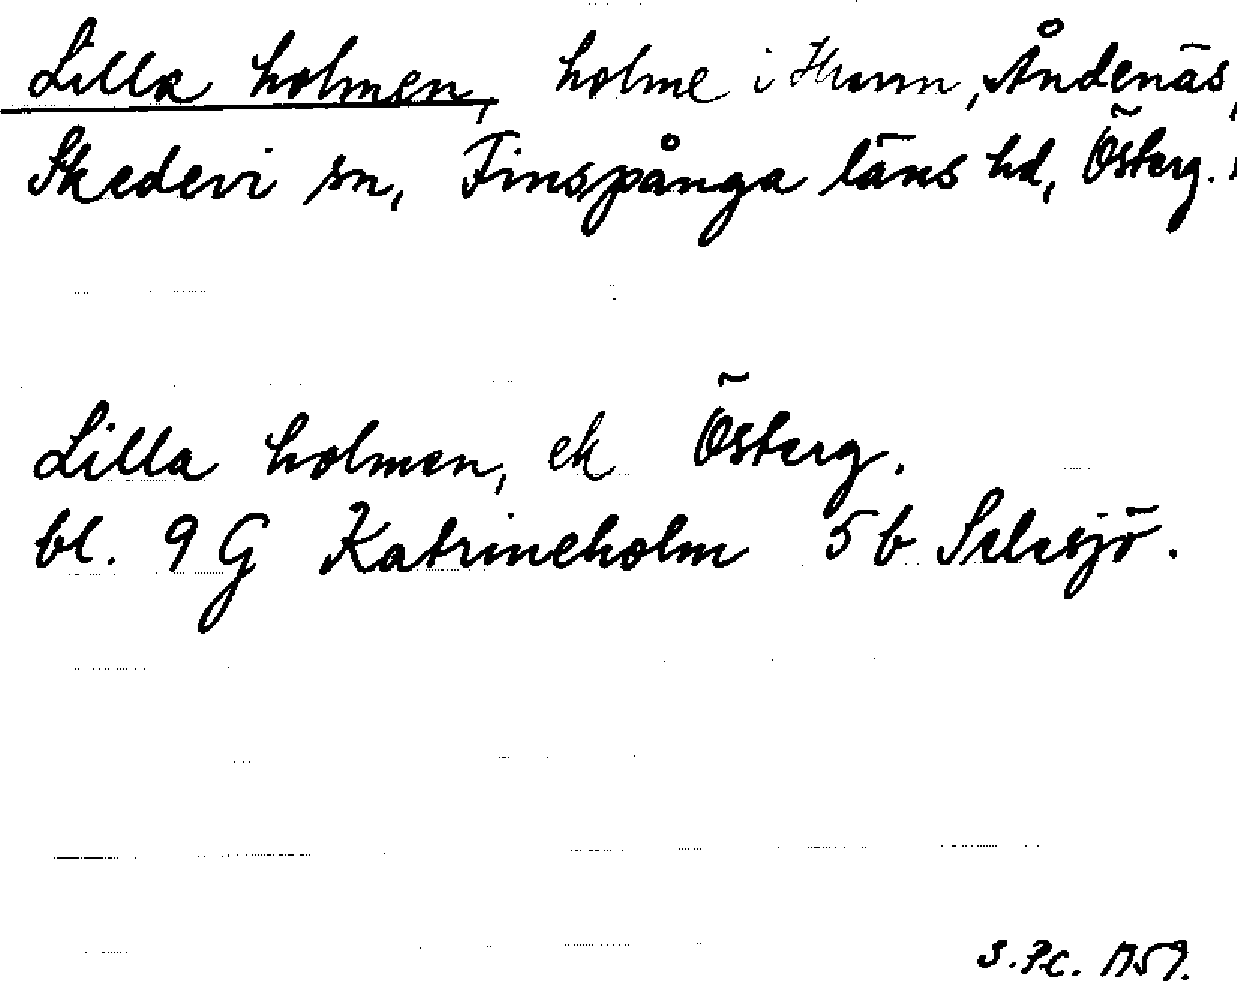 Lilla holmen, holme i Hunn, Ändenäs,
Skedevi sn, Finspånga läns hd, Österg.
Lilla holmen, ek Österg.
bl. 9 G Katrineholm 5 b
1959.